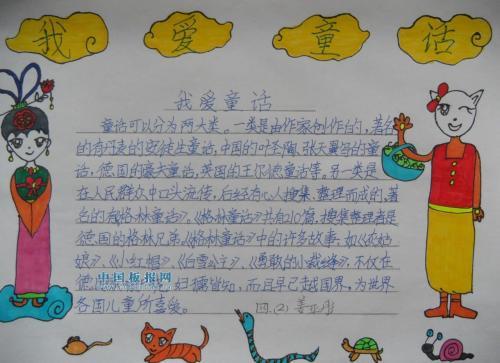 我 爱 童 话
我爱童话
童话可以分为两大类。一类是由作家创作的,著名
的有丹麦的安徒生童话,中国的叶圣陶、张天翼写的童
话,德国的豪夫童话,英国的王尔德童话等。另一类是
在人民群众中口头流传,后经有心人搜集、整理而成的,著
名的有《格林童话》。《格林童话》共有210篇,搜集整理者是
德国的格林兄弟。《格林童话》中的许多故事:如《灰姑
娘》、《小红帽》、《白雪公主》、《勇敢的小裁缝》,不仅在
德国 妇孺皆知,而且早已越国界,为世界
各国儿童所喜爱。
四.(2) 姜
中国板报网